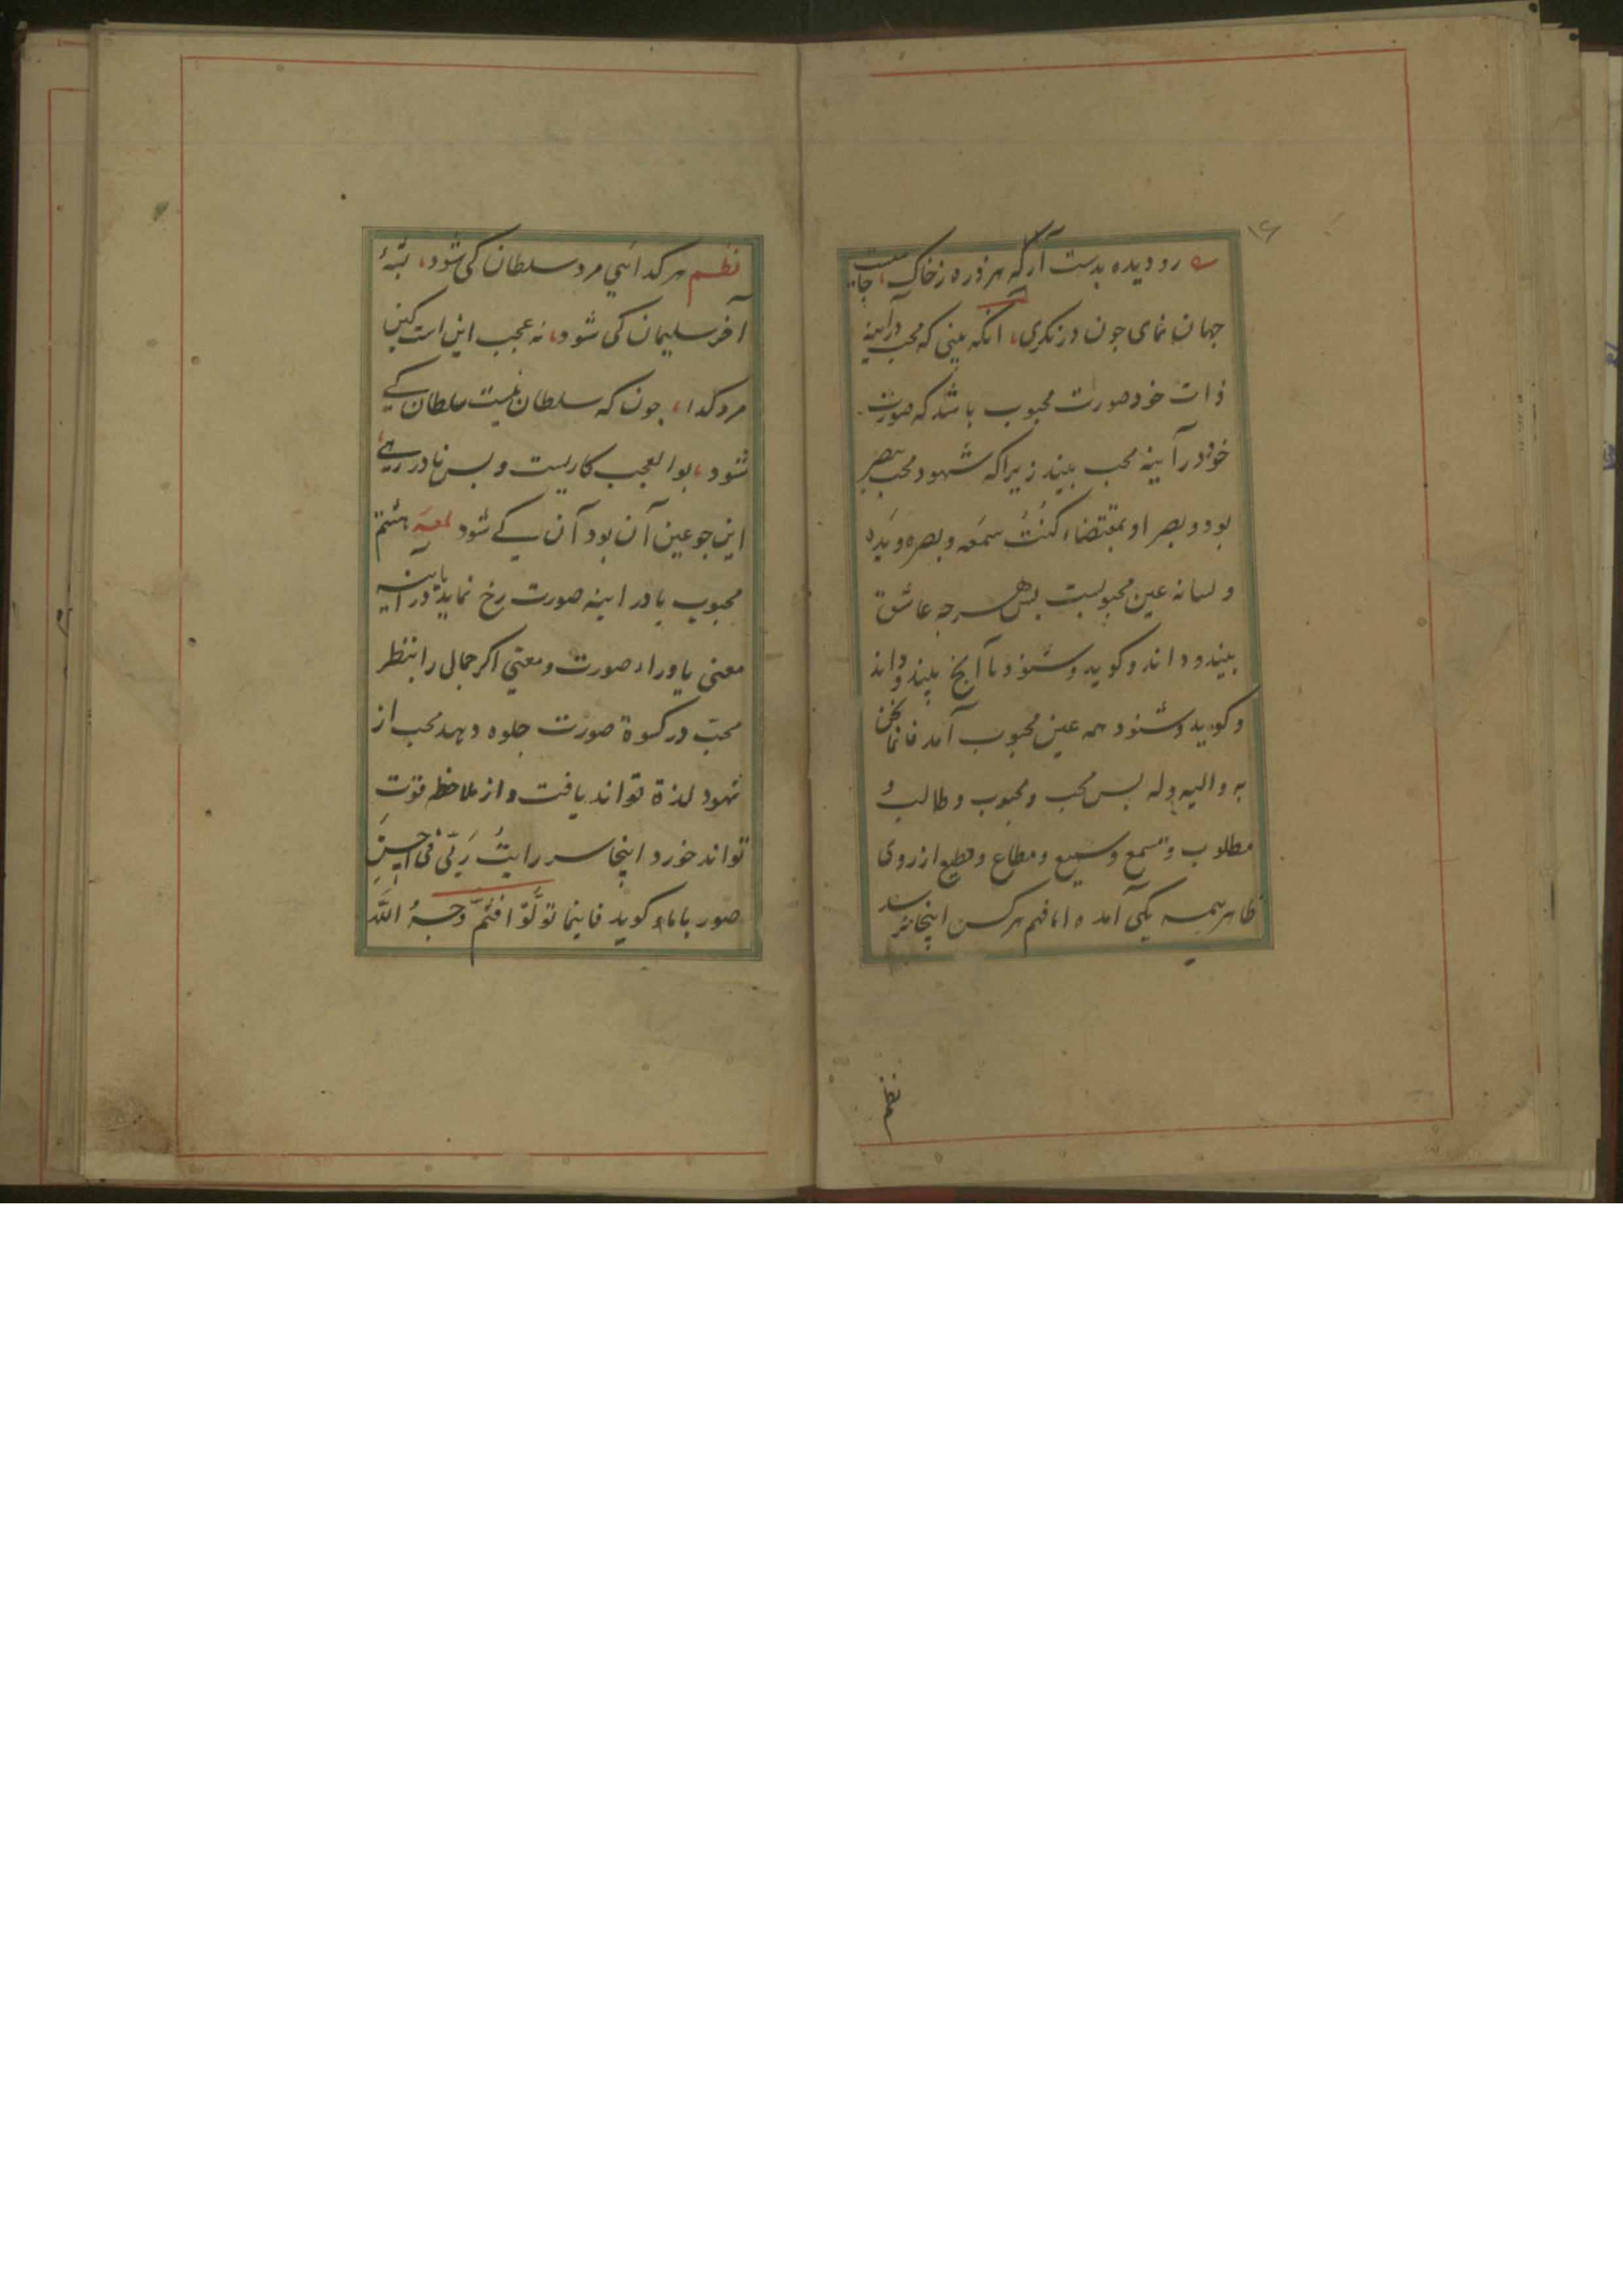 ۱۶
رو دیده بدست آر که هر ذره ز خاک، جامیست
جهان نمای جون درنکری، انکه بینی که محب در آینه
ذات خود صورت محبوب باشد که صورت
خود در آینه محب بیند زیرا که شهود محب ببصر
بود و بصر او بمقتضاء کُنْتُ سَمَعَه و بصره و یَده
و لسانه عین محبوبست بس هر جه عاشق
بیند و داند و کوید و شنود تا آنج بیند و داند
و کوید و شنود همه عین محبوب آمد فانما نحن
به و الیه و له بس محب و محبوب و طالب و
مطلوب و مسمع و سمیع و مطاع و مطیع از روی
ظاهر همه یکی آمده اما فهم هر کس اینجا نرسد
نظم
نظم هر کدائی مرد سلطان کی شود، پشهٔ
آخر سلیمان کی شود، نه عجب این است کین
مرد کدا، جون که سلطان نیست سلطان کے
شود، بوالعجب کاریست و بس نادر رهے
این جو عین آن بود آن کے شود لمعه هشتم
محبوب یا در اینه صورت رخ نماید یا در آینه
معنی یا وراء صورت و معنی اکر جمال را بنظر
محب در کسوة صورت جلوه دهد محب از
شهود لذة تواند یافت و از ملاحظه قوت
تواند خورد اینجا سر رایتُ رَبّی فی احسنِ
صور باماء کوید فاینما تولَّوا فَثَمَّ وَجهُ اللّه